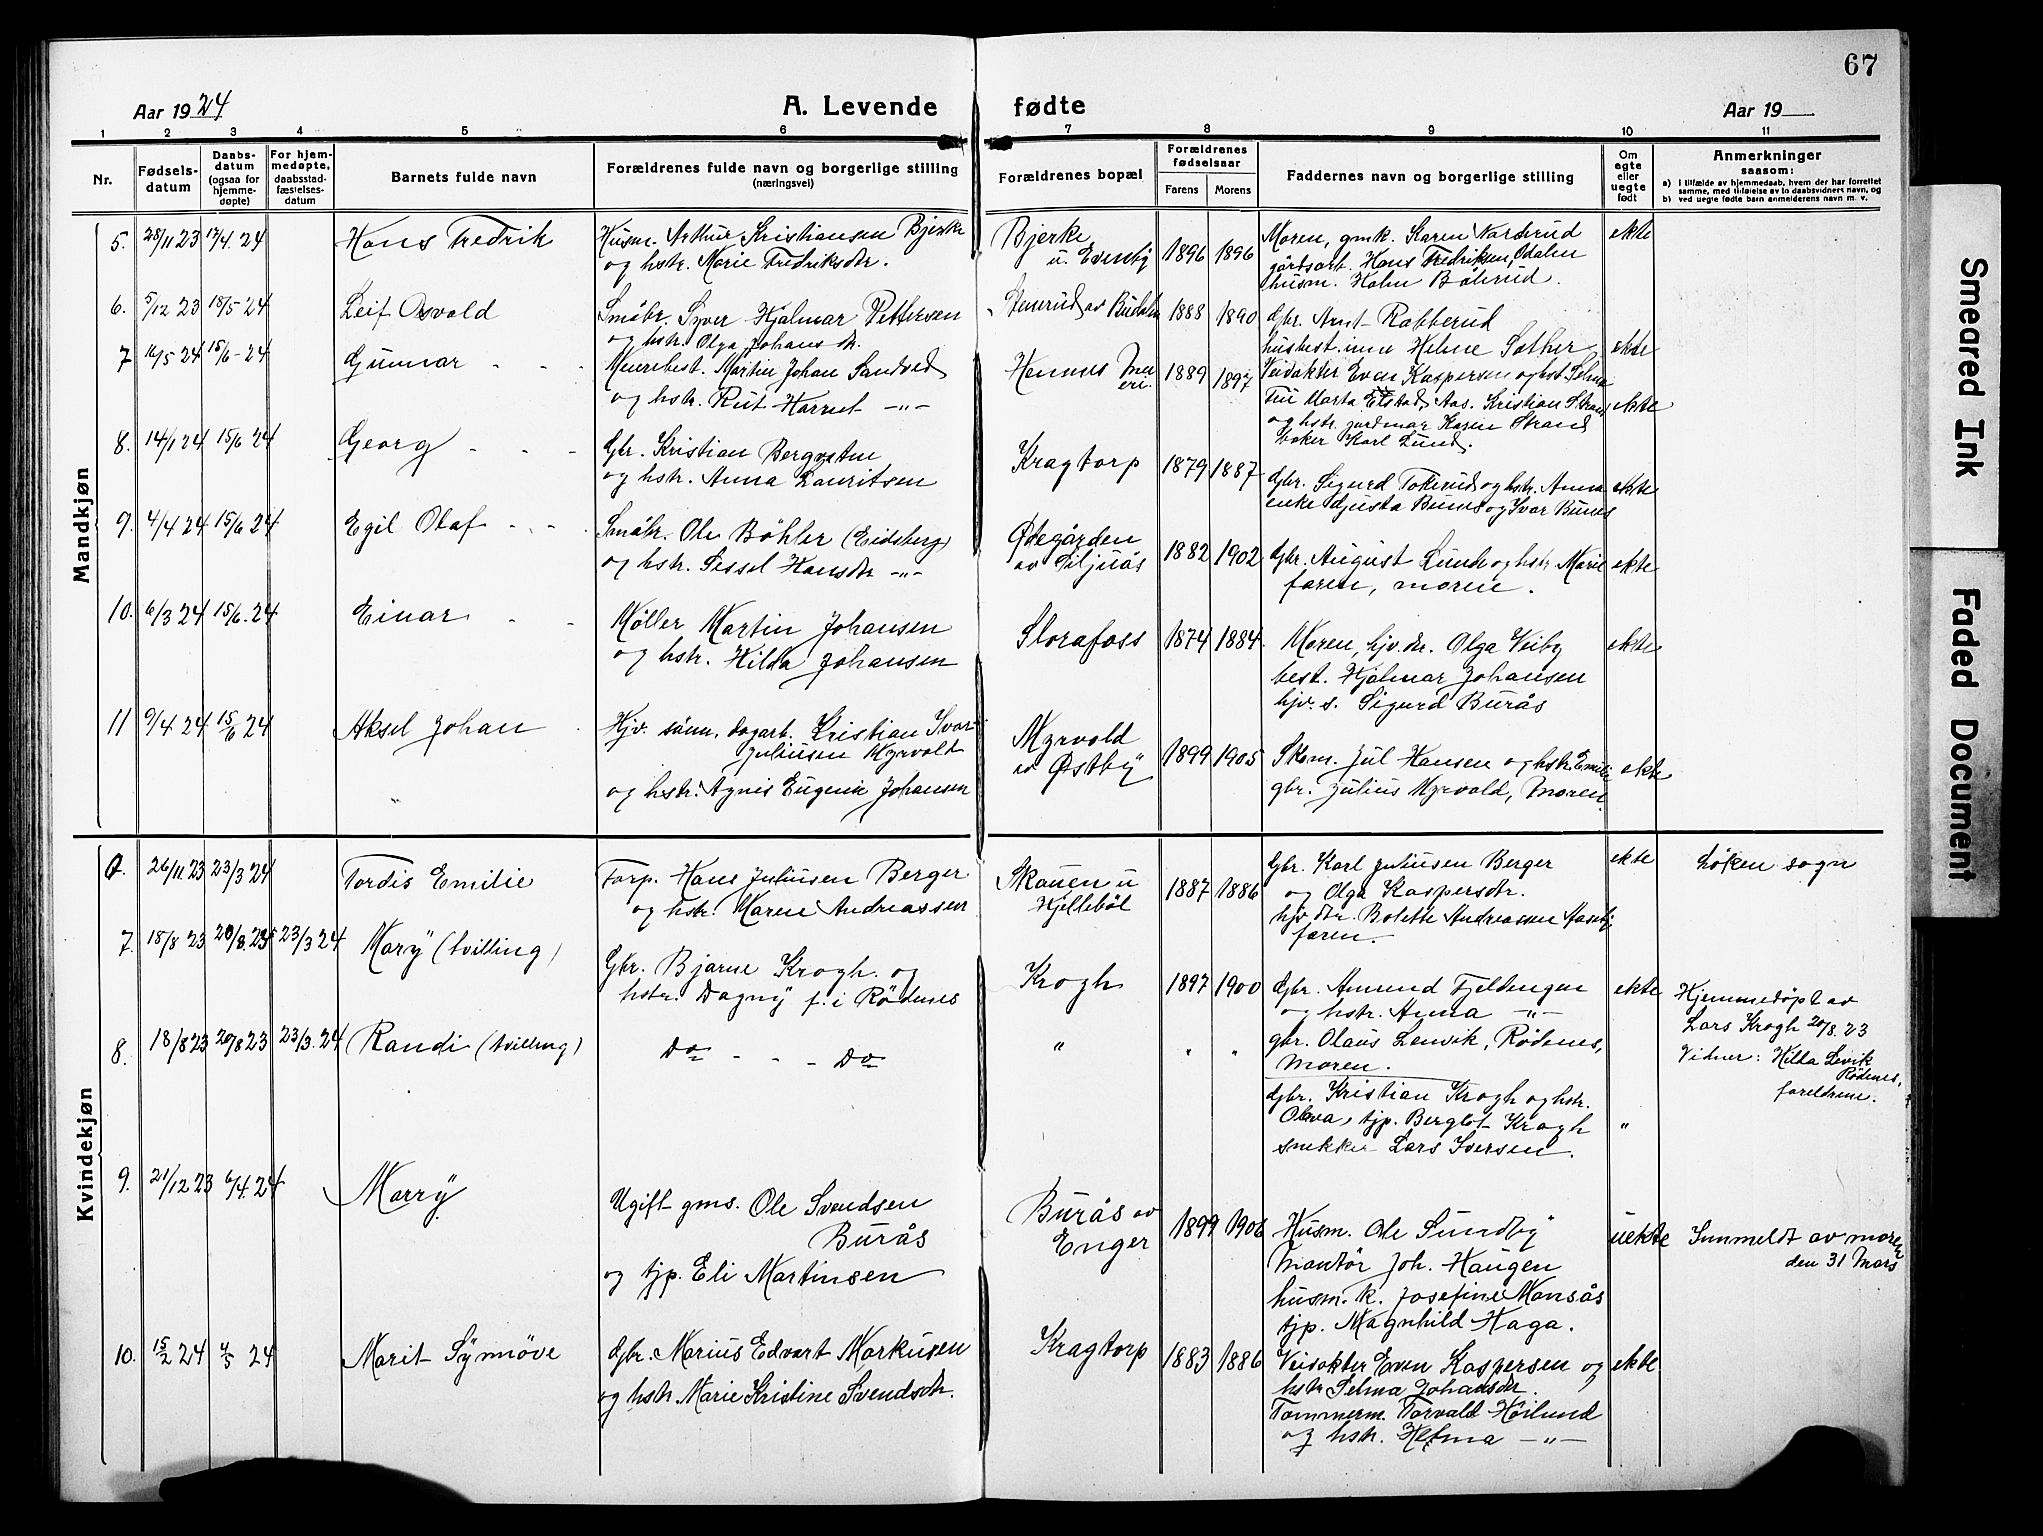 67
Aar 1924
A. Levende fødte
Aar 19
1 2 3 4 5 6 7 8 9 10 11
Nr.
Fødsels-
datum
Daabs-
datum
(ogsaa for
hjemme-
døpte)
For hjem-
medøpte,
daabsstad-
fæstelses-
datum
Barnets fulde navn
Forældrenes fulde navn og borgerlige stilling
(næringsvei)
Forældrenes bopæl
Forældrenes
fødselsaar
Farens Morens
Faddernes navn og borgerlige stilling
Om
egte
eller
uegte
født
Anmerkninger
saasom:
a) i tilfælde av hjemmedaab, hvem der har forrettet
samme, med tilføielse av to daabsvidners navn, og
b) ved uegte fødte barn anmelderens navn m. v.
Mandkjøn
5. 28/11 23 17/4. 24 Hans Fredrik
Husm. Arthur Kristiansen Bjerke
og hstr. Marie Fredriksdtr.
Bjerke
u.
1896 1896
Moren, gmk. Karen
gårdsarb. Hans Fredriksen,
husm. Holm Bøhrud.
ekte
6. 5/12 23 18/5 24 Leif Osvald
Småbr. Syver Hjalmar Pettersen
og hstr. Olga Johansdtr.
Stenerud av
1888 1890
Gbr. Arnt Rabberud
husbest.inne Helene Sæther
ekte
7 16/5 24 15/6 - 24 Gunnar
Meieribest. Martin Johan Sandved
og hstr. Rut Harriet -"-
Hennes Mei
eri.
1889 1897
Veivokter Even Kaspersen og hst. Selma
Marta Elstad, Aas. Kristian Strand
og hstr. jordmor Karen Strand
baker Karl Lund.
ekte
8. 14/1 24 15/6 24 Georg
Gbr. Kristian
og hstr. Anna Lauritsen
Kragtorp
1879 1887
Gbr. Sigurd Tokerud og hstr. Anna
enke Bunes og Ivar Bunes
ekte
9. 4/4 24 15/6 24 Egil Olaf
Småbr. Ole Bøhler (Eidsberg)
og hstr. Sessel Hansdtr -"-
Ødegården
av Siljuås
1882 1902
Gbr. August Lund og hstr. Marie
faren, moren.
ekte
10. 6/3 24 15/6. 24 Einar
Møller Martin Johansen
og hstr. Hilda Johansen
Slorafoss
1874 1884
Moren, hjv. dr. Olga Veiby
best. Hjalmar Johansen
hjv. s. Sigurd Burås
ekte
11 9/4 24 15/6 24 Aksel Johan
Hjv. sønn, dagarb. Kristian Ivar
Juliussen Myrvold
og hstr. Agnes Eugenie Johansen
Myrvold
av Østby
1899 1905
Skom. Jul Hansen og hstr. Emilie
gbr. Julius Myrvold, Moren
ekte
Kvindekjøn
26/11 23 23/3 24 Tordis Emilie
Forp. Hans Juliussen Berger
og hstr. Maren Andreassen
Skauen u
Hjellebøl
1887 1886
Gbr. Karl Juliusen Berger
og Olga Kaspersdtr.
hjv dtr. Bolette Andreassen
faren.
ekte
Løken sogn
7. 18/8 23 20/8. 23 23/3 24 Mary (tvilling)
Gbr. Bjarne Krogh og
hstr. Dagny f. i Rødenes
Krogh
1897 1900
Gbr. Amund Fjeldengen
og hstr. Anna -"-
gbr. Olaus Lenvik, Rødenes,
Moren.
ekte
Hjemmedøpt av
Lars Krogh 20/8. 23
Vidner: Hilla
Rødenes,
foreldrene.
8. 18/8 23 20/8 23 23/3. 24 Randi (tvilling)
Do - - - Do
" " "
Gbr. Kristian Krogh og hstr.
tjp. Bergliot Krogh
snekker Lars Iversen.
"
9. 21/12 23 6/4. 24 Marry
Ugift gms. Ole Svendsen
Burås
og tjp. Eli Martinsen
Burås av
Enger
1899 1906
Husm. Ole Sundby
Montør Joh. Haugen
husm. k. Josefine Monsås
tjp. Magnhild Haga.
uekte
Innmeldt av moren
den 31 Mars
10. 15/2 24 4/5 24 Marit Synnøve
Gbr. Marius Edvart Markusen
og hstr. Marie Kristine Svendsdtr.
Kragtorp
1883 1886
Veivokter Even Kaspersen og
hstr Selma Johansdtr.
Tømmerm. Torvald Høilund
og hstr. Helma -"-
ekte
Smeared Ink
Faded Document